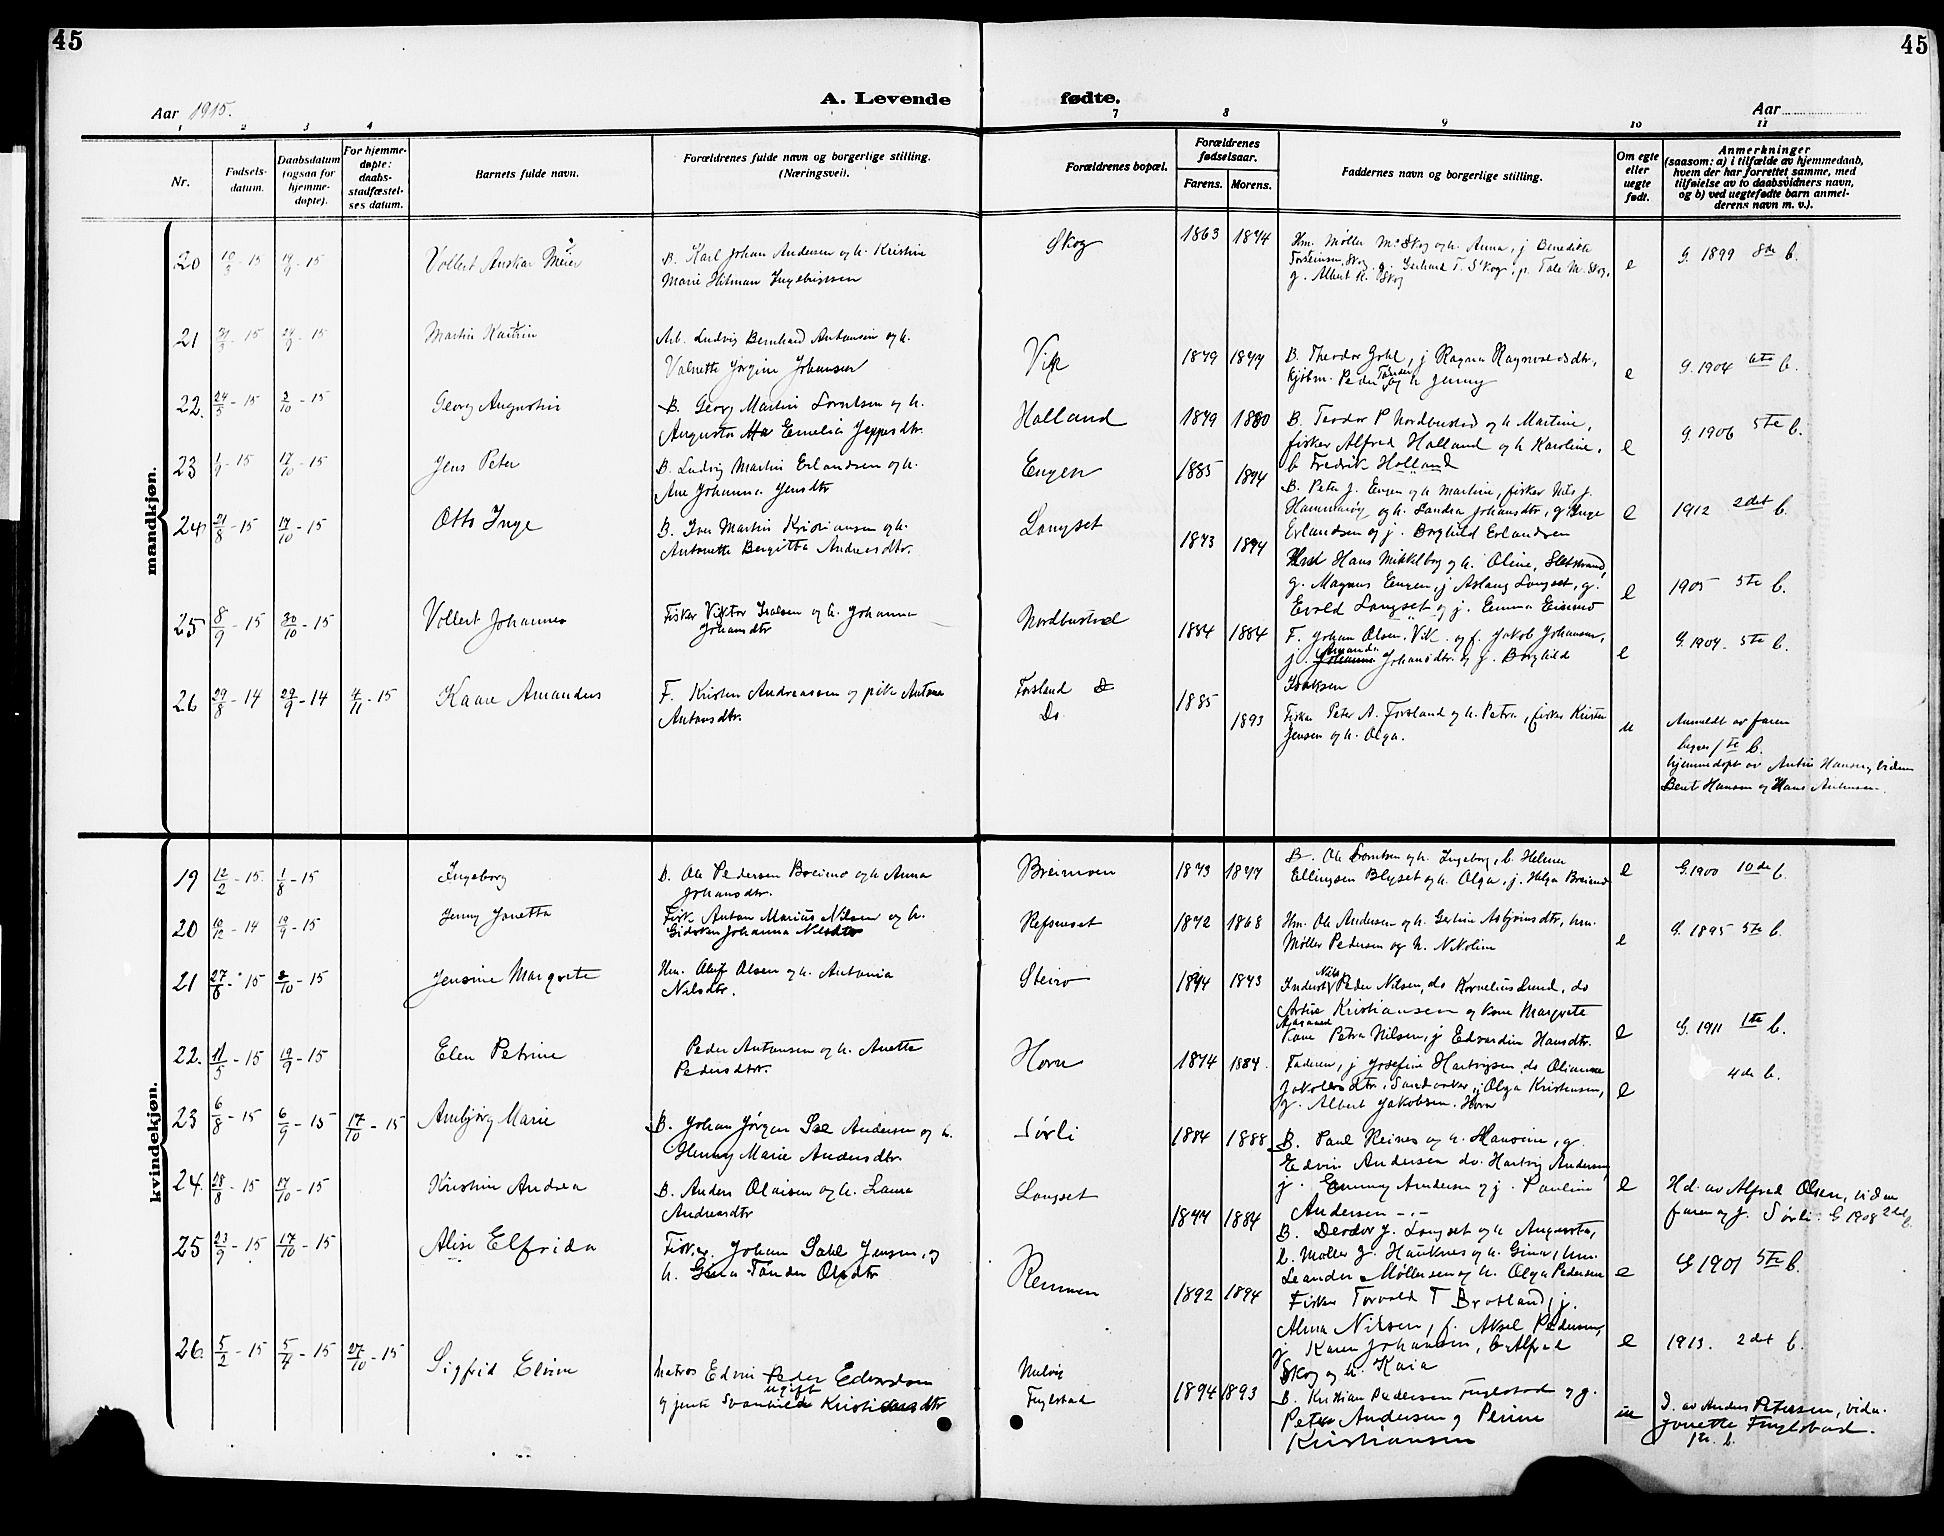 45
45
Aar 1915.
A. Levende fødte.
Aar
1 2 3 4 7 8 9 10 11
Nr.
Fødsels-
datum.
Daabsdatum
(ogsaa for
hjemme-
døpte).
For hjemme-
døpte:
daabs-
stadfæstel-
ses datum.
Barnets fulde navn.
Forældrenes fulde navn og borgerlige stilling.
(Næringsvei).
Forældrenes bopæl.
Forældrenes
fødselsaar.
Farens. Morens.
Faddernes navn og borgerlige stilling.
Om egte
eller
uegte
født.
Anmerkninger
(saasom: a) i tilfælde av hjemmedaab,
hvem der har forrettet samme, med
tilføielse av to daabsvidners navn,
og b) ved uegtefødte barn anmel-
derens navn m. v.).
mandkjøn.
20 10/3 - 15 19/9 - 15 Vollert Anskar Meier
B. Karl Johan Andersen og h. Kristine
Marie Hitman Ingebrigtsen
Skog 1863 1874
Hm. Møller M. Skog og h. Anna, j Benedikte
g. Albert K. Skog
e G. 1899 8de b.
21 - 15 - 15 Martin
Arb. Ludvig Bernhard Antonsen og h.
Valnette Jørgine Johansen
Vik 1879 1877
B. Theodor Johl, j Ragna Ragnvaldsdtr,
kjøbm. Peder og h Jenny
e G. 1904 6te b.
22. 24/5 - 15 3/10 - 15 Georg Augustin
B. Georg Martin Lorntsen og h.
Augusta Emelia Jeppesdtr.
Holland 1879 1880
B. Teodor P Nordbustad og h Martine,
fisker Alfred Holland og h Karoline,
b Fredrik Holland
e G. 1906 5te b.
23 1/9 - 15 17/10 - 15 Jens Peter
B. Ludvig Martin Erlandsen og h.
Ane Johanna Jensdtr
Engen 1885 1894
B. Peter J. Engen og h Martine, fisker Nils J.
Hammerøy og h. Landia Johansdtr, g Inge
Erlandsen og j. Borghild Erlandsen
e 1912 2det b.
24. 21/8 - 15 17/10 - 15 Otto Inge
B. Iver Martin Kristiansen og h.
Antonette Bergitta Andreasdtr.
Langset 1873 1874
Hans Mikkelborg og h. Oline, Sletstrand,
g. Magnus Engen, j Aslaug Langset, g.
Evald Langset og j. Emma Eisemo
e 1905 5te b.
25 8/9 - 15 30/10 - 15 Vollert Johannes
Fisker Viktor Isaksen og h. Johanna
Johansdtr
Nordbustad 1884 1884
F. Johan Olsen, Vik. og f. Jakob Johansen,
j. Amanda Johansdtr. og j. Borghild
Isaksen
e G. 1907. 5te b.
26 29/8 - 14 29/9 - 14 7/11 - 15 Kaare Amandus
F. Kristen Andreassen og pike Antona
Antonsdtr.
Forsland
Do 1885
1893
Fisker Peter A. Forsland og h. Petra, fisker Kristen
Jensen og h. Olga.
u
Anmeldt av faren
begges 1te b.
hjemmedøpt av Antine Hansen, vidner
Berit Hansen og Hans Antonsen.
kvindekjøn.
19 12/2 - 15. 1/8 - 15 Ingeborg
B. Ole Pedersen Breimo og h Anna
Johansdtr.
Breimoen 1873 1877
B. Ole Lorntsen og h. Ingeborg, b. Helmer
Ellingsen Blyset og h. Olga, j. Helga Breimo
e G. 1900 10de b.
20 10/12 - 14 19/9 - 15 Jenny Jonetta
Fisk. Anton Marius Nilsen og h.
Gidsken Johanna Nilsdtr
Refsenset 1872 1868
Hm. Ole Andersen og h. Gertine Asbjørnsdtr, hm.
Møller Pedersen og h. Nikoline
e G. 1895 5te b.
21 27/6 - 15 3/10 - 15 Jensine Margrete
Hm. Oluf Olsen og h. Antonia
Nilsdtr.
Steiro 1874 1873
Inderst Nils Peder Nilsen, do Kornelius Lund, do
Kristiansen og kone Margrete
kone Petra Nilsen, j Edvardine Hansdtr.
e G. 1911 1te b.
22. 11/5 - 15 19/9 - 15 Elen Petrine
Peder Antonsen og h. Anette
Pedersdtr.
Horn 1874 1884
Faderen, j Josefine Hartvigsen, do Oliane
Jakobsdtr. Sandvaker, j Olga Kristensen,
g. Albert Jakobsen. Horn
e 4de b.
23 6/8 - 15 6/9 - 15 17/10 - 15 Arnbjørg Marie
B. Johan Jørgen Andersen og h.
Henny Marie Andersdtr.
Sørli 1884 1888
B. Paul Reines og h. Hansine, g.
Edvin Andersen do. Hartvig Andersen,
j. Emmy Andersen og j. Pauline
Andersen
e
Hd. av Alfred Olsen, vidne
faren og J. Sørli. G 1908 2det b.
24. 28/8 - 15 17/10 - 15 Kristine Andrea
B. Anders Olaisen og h. Laura
Andreasdtr
Langset 1877 1884
B. Teodor J. Langset og h Augusta,
b. Møller J. Hauknes og h. Gina, hm.
Leander Møllersen og h. Olga Pedersen
e G 1907 5te b.
25 23/9 - 15 17/10 - 15 Alise Elfrida
Fisker Johan Jensen, og
h. Gina Tander Olsdtr
Remmen 1892 1894
Fisker Torvald T Brotland, j.
Alma Nilsen, f. Aksel Pedersen,
j Karen Johansen, b Alfred
Skog og h. Kaia
e 1913. 2det b.
26. 5/2 - 15 5/4 - 15 27/10 - 15 Sigfrid Elvine
Matros Edvin Peder Edvardsen
og jente ugift Svanhild Kristiansdtr
Fuglstad 1894 1893
B. Kristian Pedersen Fuglstad og g.
Petter Andersen og Perine
Kristiansen
u
D. av Anders Petersen, vidn.
Jonette Fuglstad.
1te b.